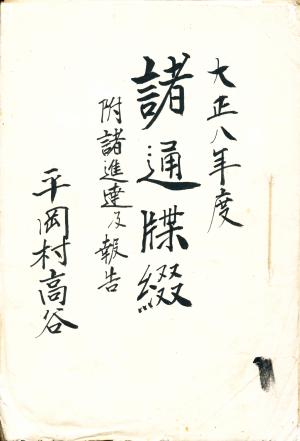 大正八年度
諸通牒綴
附諸進達及報告
平岡村高谷